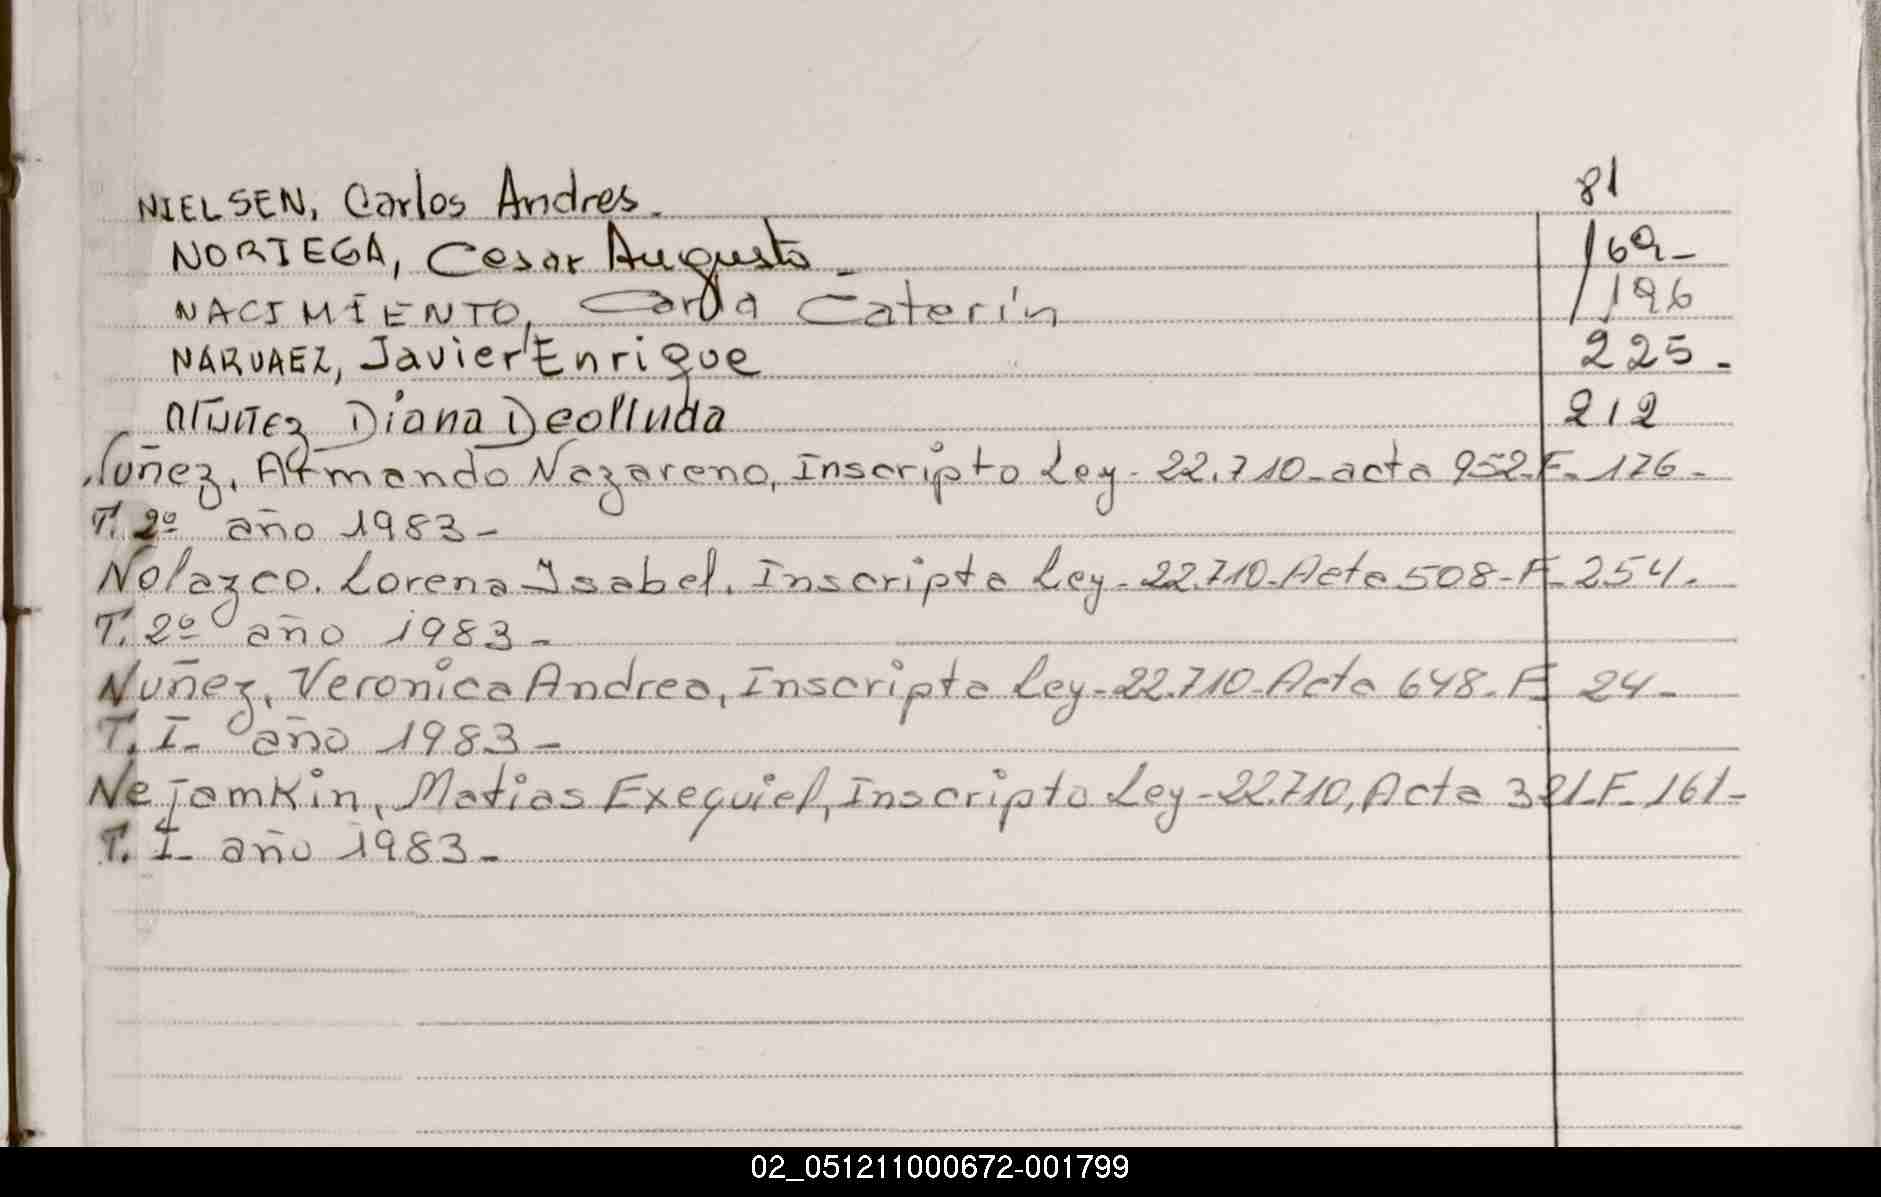 NIELSEN, Carlos Andres. 81
NORIEGA, Cesar Augusto - 169-
NACIMIENTO, Carla Caterin 196
NARVAEZ, Javier Enrique 225.
NUÑEZ Diana Deolluda 212
Nuñez, Armando Nazareno, Inscripto Ley- 22.710-acta 952-F- 176-
T. 2º año 1983-
Nolazco. Lorena Isabel. Inscripta Ley- 22.710-Acta 508-F- 254.
T. 2º año 1983-
Nuñez, Veronica Andrea, Inscripta Ley-22.710-Acta 648-F 24-
T. I- año 1983-
Nejamkin, Matias Exequiel, Inscripto Ley-22.710, Acta 321-F- 161-
T. I- año 1983-
02_051211000672-001799